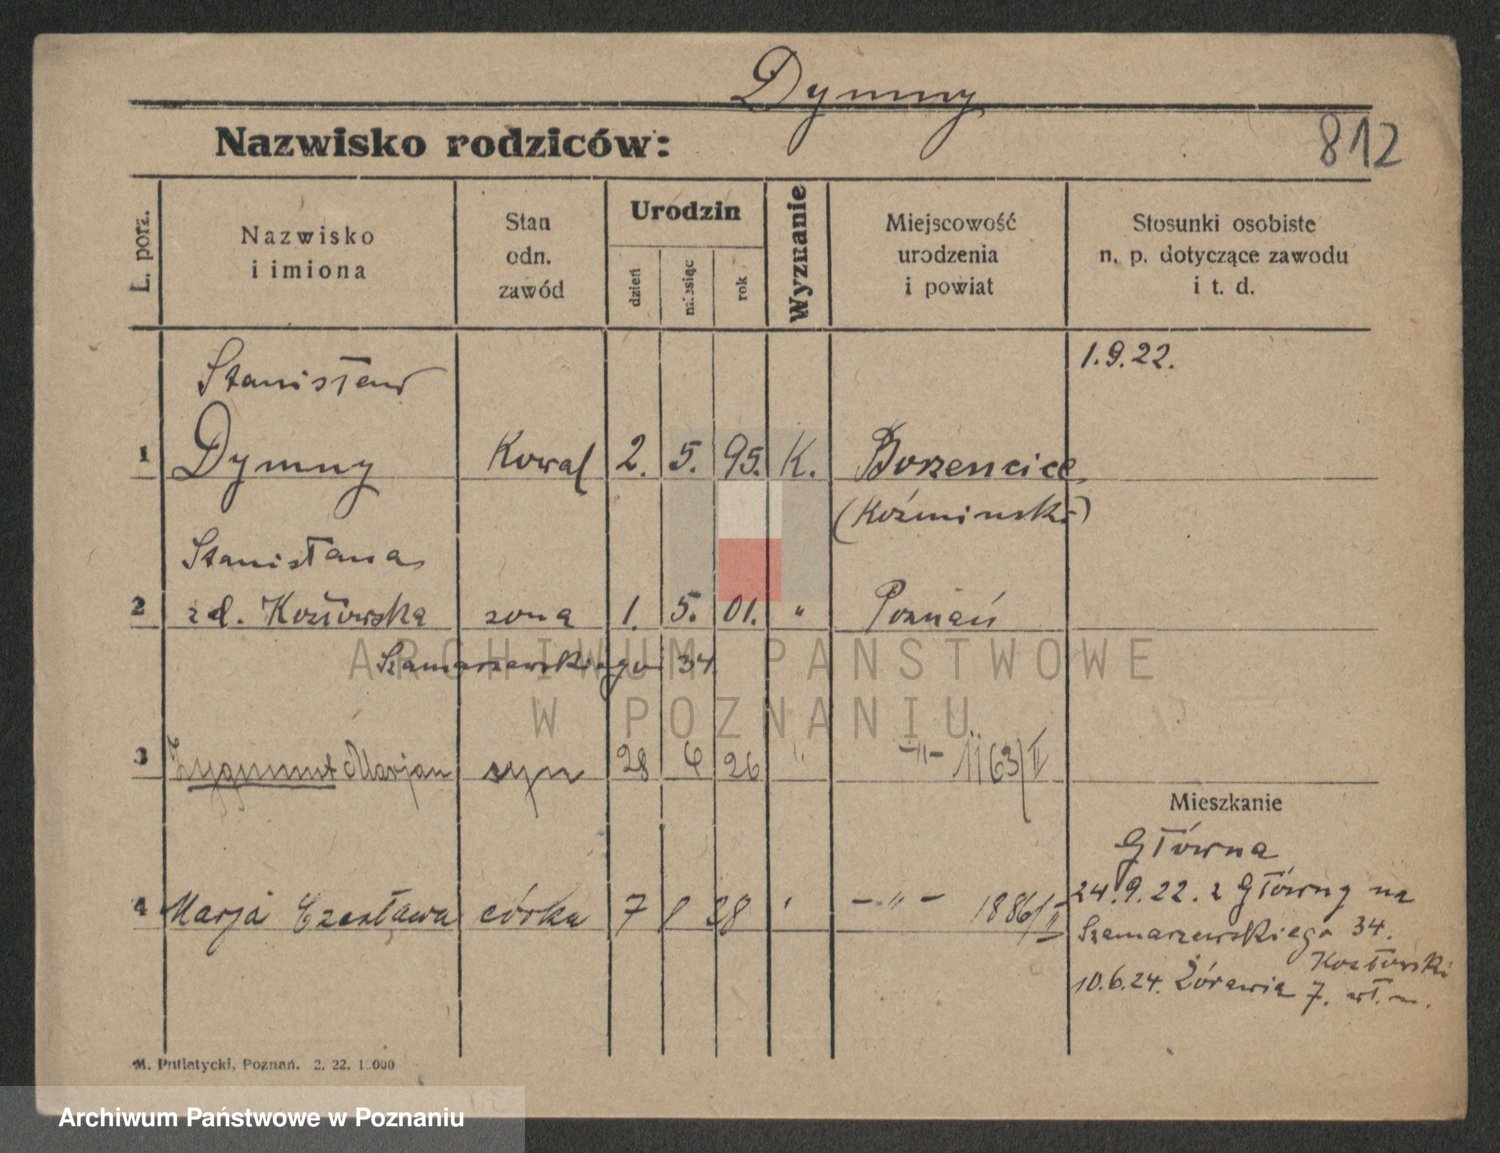 Dymny
Nazwisko rodziców:
812
L. porz.
Nazwisko
i imiona
Stan
odn.
zawód
Urodzin
dzień
miesiąc
rok
Wyznanie
Miejscowość
urodzenia
i powiat
Stosunki osobiste
n. p. dotyczące zawodu
i t. d.
1.9.22.
Stanisław
1 Dymny Kowal 2. 5. 95. K. Borzencice
(Koźmiński)
Stanisława
2 zd. Kozłowska żona 1. 5. 01. " Poznań
Szamarzewskiego 34.
3 Zygmunt Marjan syn 28 6 26 " -"- 1163/II
Mieszkanie
Główna
4 Marja Czesława córka 7 8 28 " -"- 1886/II
24.9.22. z Główny na
Szamarzewskiego 34.
Kozłowski
10.6.24. Żórawia 7. wł. m.
M. Putiatycki, Poznań. 2. 22. 1.000
ARCHIWUM PAŃSTWOWE
W POZNANIU
Archiwum Państwowe w Poznaniu